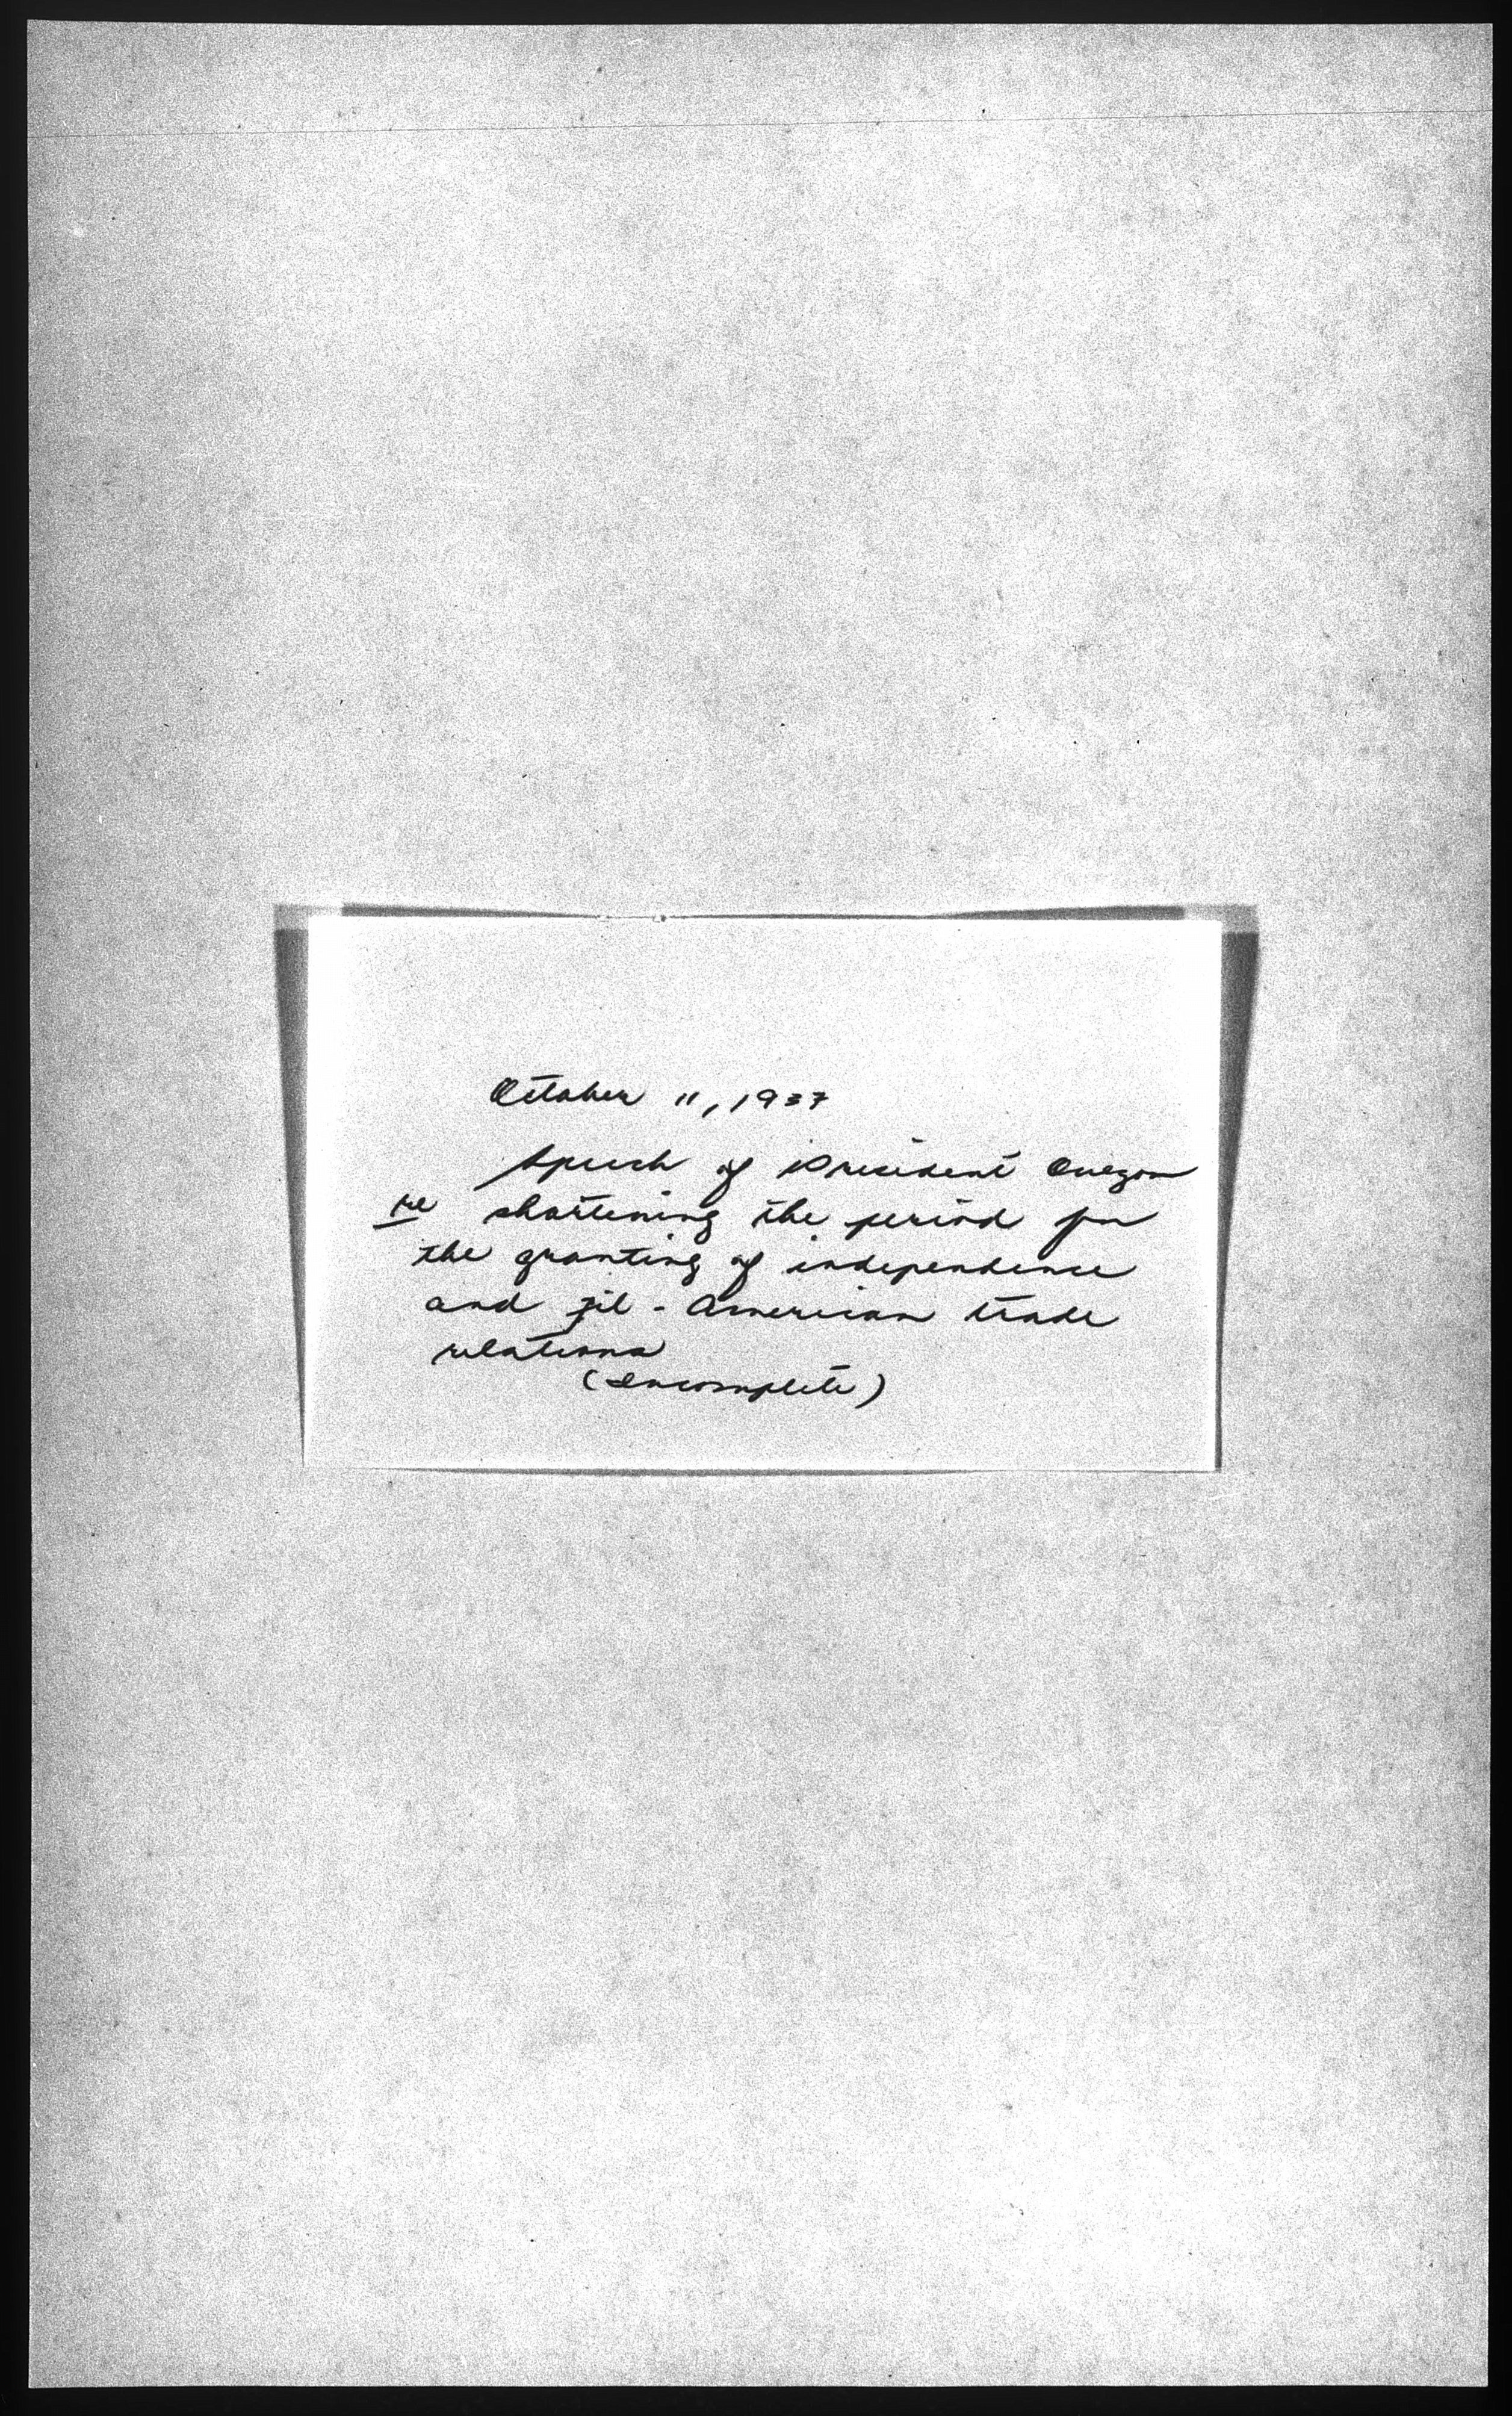 October 11, 1937
Speech of President Quezon
re shortening the period for
the granting of independence
and Fil-American trade
relations
(Incomplete)